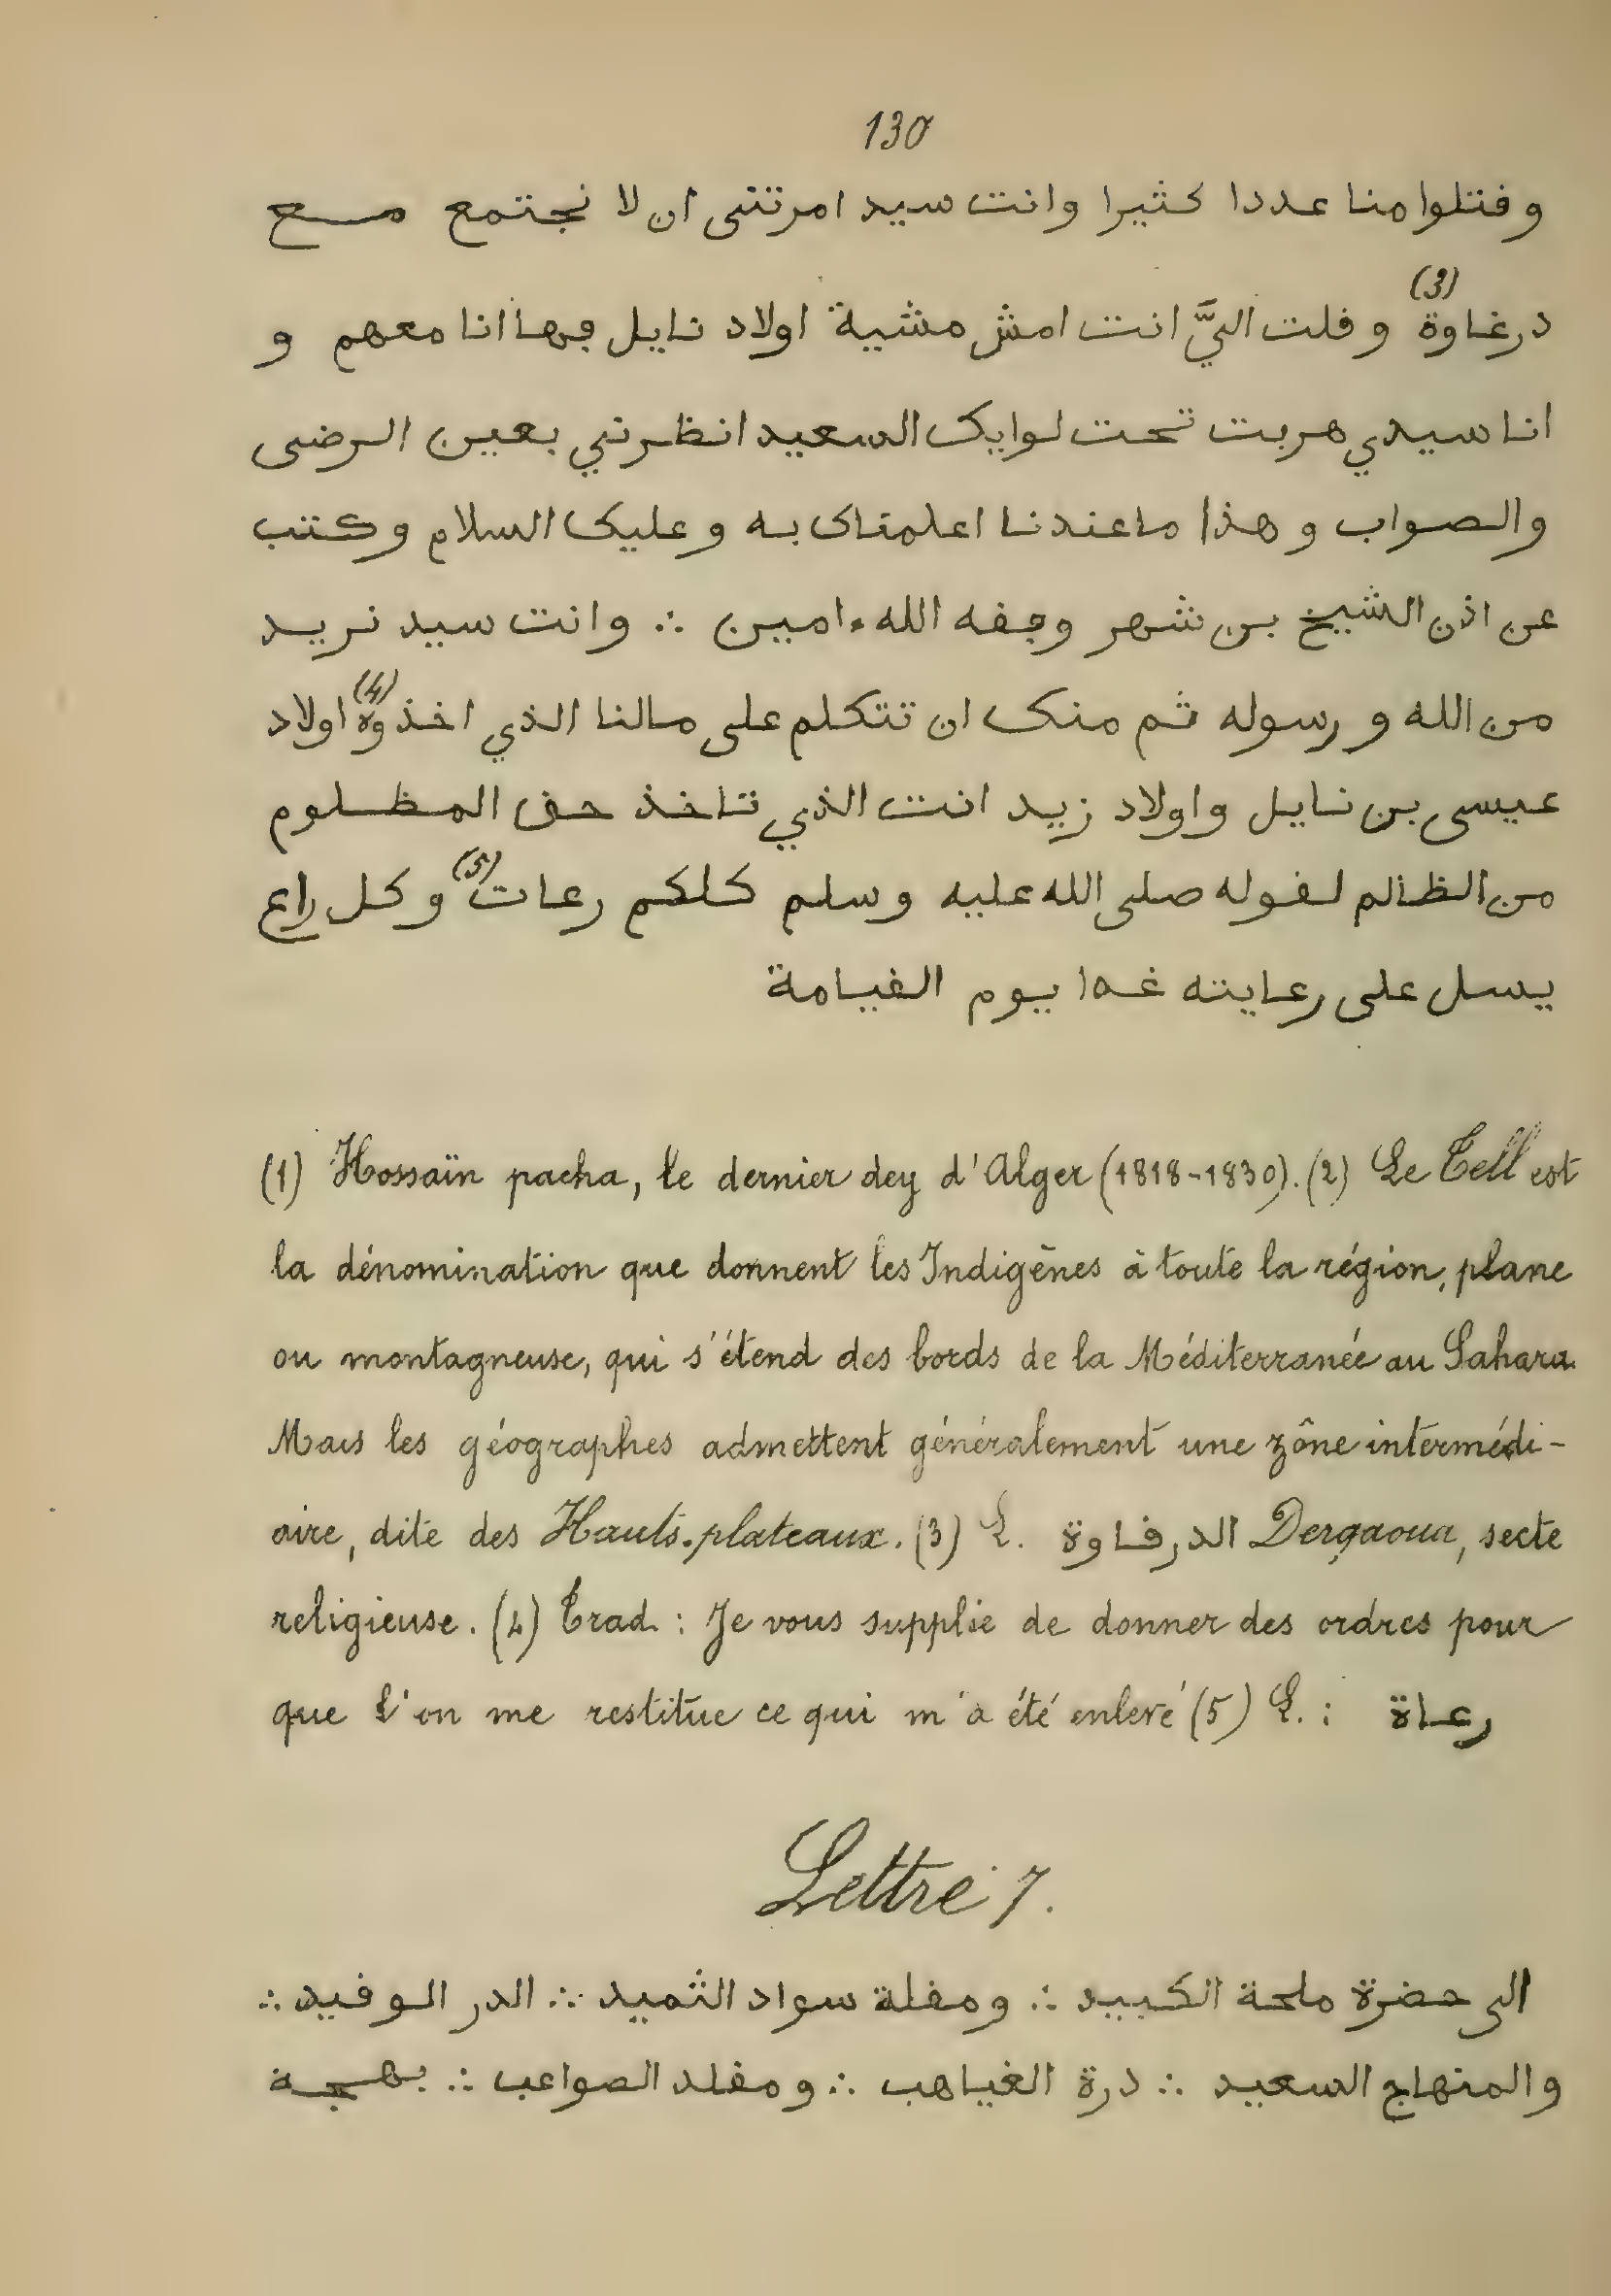 130
وقتلوا منا عددا كثيرا وانت سيد امرتنى ان لا نجتمع مع
درغاوة (3) وقلت اليَّ انت امش مشية اولاد نايل فها انا معهم و
انا سيدي هربت تحت لوايك السعيد انظرني بعين الرضى
والصواب وهذا ما عندنا اعلمناك به وعليك السلام وكتب
عن اذن الشيخ بن شهر وفقه الله ءامين ∴ وانت سيد نريد
من الله ورسوله ثم منك ان تتكلم على مالنا الذي اخذوه (4) اولاد
عيسى بن نايل واولاد زيد انت الذي تاخذ حق المظلوم
من الظالم لقوله صلى الله عليه وسلم كلكم رعات (5) وكل راع
يسل على رعايته غدا يوم القيامة
(1) Hossaïn pacha, le dernier dey d'Alger (1818-1830). (2) Le Tell est
la dénomination que donnent les Indigènes à toute la région, plane
ou montagneuse, qui s'étend des bords de la Méditerranée au Sahara.
Mais les géographes admettent généralement une zône intermédi-
aire, dite des Hauts-plateaux. (3) L. الدرقاوة Derqaoua, secte
religieuse. (4) Trad. : Je vous supplie de donner des ordres pour
que l'on me restitue ce qui m'a été enlevé (5) L. : رعاة
Lettre 7.
الى حضرة ملحة الكبيد ∴ ومقلة سواد الثميد ∴ الدر الوقيد ∴
والمنهاج السعيد ∴ درة الغياهب ∴ ومقلد الصواعب ∴ بهجة